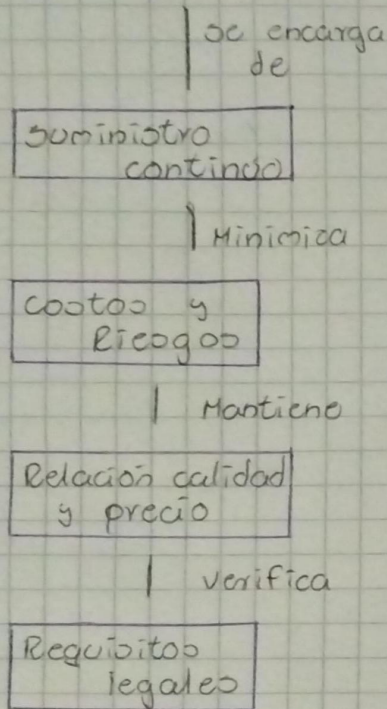 se encarga
de
suministro
continuo
Minimiza
costos y
Riesgos
Mantiene
Relación calidad
y precio
verifica
Requisitos
legales